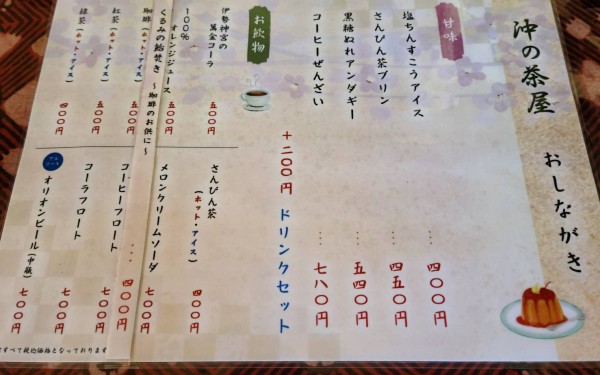 沖の茶屋 おしながき
甘味
塩ちんすこうアイス … 四〇〇円
さんぴん茶プリン … 四五〇円
黒糖ぬれアンダギー … 五四〇円
コーヒーぜんざい … 七八〇円
+二〇〇円 ドリンクセット
お飲物
伊勢神宮の萬金コーラ 五〇〇円
100% オレンジジュース 五〇〇円
くるみの飴焚き ~珈琲のお供に~
珈琲(ホット・アイス) 五〇〇円
紅茶(ホット・アイス) 五〇〇円
緑茶(ホット・アイス) 四〇〇円
さんぴん茶(ホット・アイス) 四〇〇円
メロンクリームソーダ 七〇〇円
… 四〇〇円
コーヒーフロート
コーラフロート 七〇〇円
オリオンビール(中瓶) 七〇〇円
すべて税込価格となっております